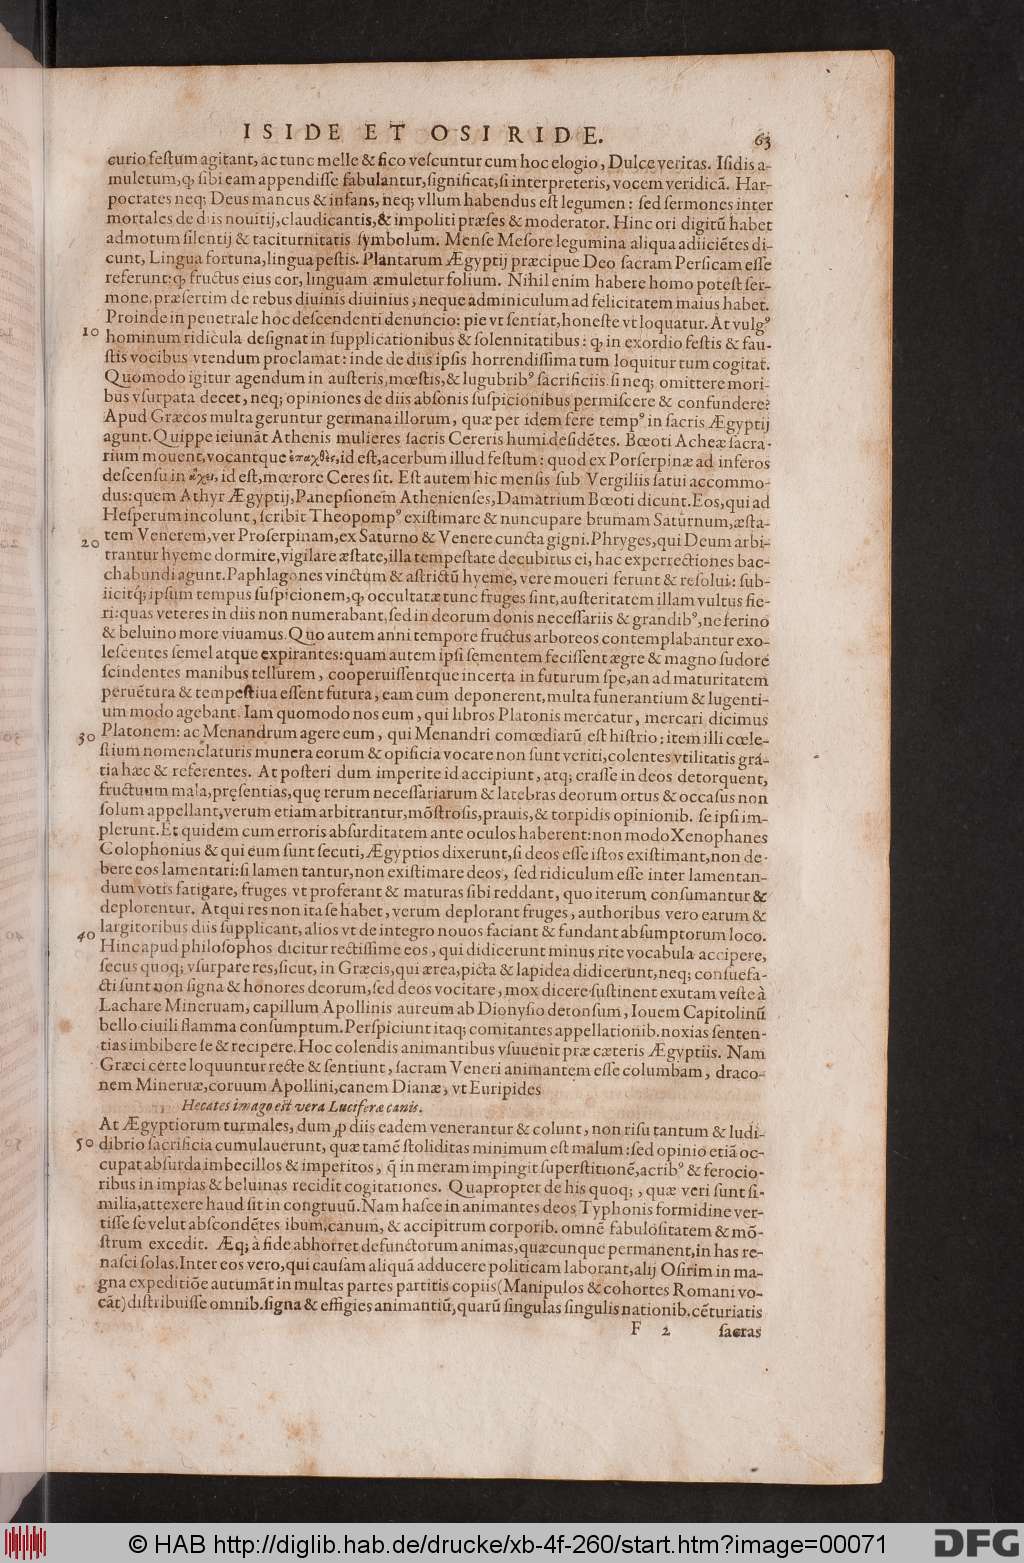 ISIDE ET OSIRIDE. 63
curio festum agitant, ac tunc melle & fico vescuntur cum hoc elogio, Dulce veritas. Isidis a-
muletum, q̨ sibi eam appendisse fabulantur, significat, si interpreteris, vocem veridicã. Har-
pocrates neq; Deus mancus & infans, neq; vllum habendus est legumen: sed sermones inter
mortales de diis nouitij, claudicantis, & impoliti præses & moderator. Hinc ori digitũ habet
admotum silentij & taciturnitatis symbolum. Mense Mesore legumina aliqua adiiciẽtes di-
cunt, Lingua fortuna, lingua pestis. Plantarum Ægyptij præcipue Deo sacram Persicam esse
referunt: q̨ fructus eius cor, linguam æmuletur folium. Nihil enim habere homo potest ser-
mone, præsertim de rebus diuinis diuinius; neque adminiculum ad felicitatem maius habet.
Proinde in penetrale hoc descendenti denuncio: pie vt sentiat, honeste vt loquatur. At vulgꝰ
10 hominum ridicula designat in supplicationibus & solennitatibus: q̨ in exordio festis & fau-
stis vocibus vtendum proclamat: inde de diis ipsis horrendissima tum loquitur tum cogitat.
Quomodo igitur agendum in austeris, mœstis, & lugubribꝰ sacrificiis si neq; omittere mori-
bus vsurpata decet, neq; opiniones de diis absonis suspicionibus permiscere & confundere?
Apud Græcos multa geruntur germana illorum, quæ per idem fere tempꝰ in sacris Ægyptij
agunt. Quippe ieiunãt Athenis mulieres sacris Cereris humi desidẽtes. Bœoti Acheæ sacra-
rium mouent, vocantque ἐπαχθὲς, id est, acerbum illud festum: quod ex Porserpinæ ad inferos
descensu in ἄχει, id est, mœrore Ceres sit. Est autem hic mensis sub Vergiliis satui accommo-
dus: quem Athyr Ægyptij, Panepsionem Athenienses, Damatrium Bœoti dicunt. Eos, qui ad
Hesperum incolunt, scribit Theopompꝰ existimare & nuncupare brumam Saturnum, æsta-
20 tem Venerem, ver Proserpinam, ex Saturno & Venere cuncta gigni. Phryges, qui Deum arbi-
trantur hyeme dormire, vigilare æstate, illa tempestate decubitus ei, hac experrectiones bac-
chabundi agunt. Paphlagones vinctum & astrictũ hyeme, vere moueri ferunt & resolui: sub-
iicitq́; ipsum tempus suspicionem, q̨ occultatæ tunc fruges sint, austeritatem illam vultus fie-
ri: quas veteres in diis non numerabant, sed in deorum donis necessariis & grandibꝰ, ne ferino
& beluino more viuamus. Quo autem anni tempore fructus arboreos contemplabantur exo-
lescentes semel atque expirantes: quam autem ipsi sementem fecissent ægre & magno sudore
scindentes manibus tellurem, cooperuissentque incerta in futurum spe, an ad maturitatem
peruẽtura & tempestiua essent futura, eam cum deponerent, multa funerantium & lugenti-
um modo agebant. Iam quomodo nos eum, qui libros Platonis mercatur, mercari dicimus
30 Platonem: ac Menandrum agere eum, qui Menandri comœdiarũ est histrio: item illi cœle-
stium nomenclaturis munera eorum & opificia vocare non sunt veriti, colentes vtilitatis grá-
tia hæc & referentes. At posteri dum imperite id accipiunt, atq; crasse in deos detorquent,
fructuum mala, pręsentias, quę rerum necessariarum & latebras deorum ortus & occasus non
solum appellant, verum etiam arbitrantur, mõstrosis, prauis, & torpidis opinionib. se ipsi im-
plerunt. Et quidem cum erroris absurditatem ante oculos haberent: non modo Xenophanes
Colophonius & qui eum sunt secuti, Ægyptios dixerunt, si deos esse istos existimant, non de-
bere eos lamentari: si lamen tantur, non existimare deos, sed ridiculum esse inter lamentan-
dum votis fatigare, fruges vt proferant & maturas sibi reddant, quo iterum consumantur &
deplorentur. Atqui res non ita se habet, verum deplorant fruges, authoribus vero earum &
40 largitoribus diis supplicant, alios vt de integro nouos faciant & fundant absumptorum loco.
Hinc apud philosophos dicitur rectissime eos, qui didicerunt minus rite vocabula accipere,
secus quoq; vsurpare res, sicut, in Græcis, qui ærea, picta & lapidea didicerunt, neq; consuefa-
cti sunt non signa & honores deorum, sed deos vocitare, mox dicere sustinent exutam veste à
Lachare Mineruam, capillum Apollinis aureum ab Dionysio detonsum, Iouem Capitolinũ
bello ciuili flamma consumptum. Perspiciunt itaq; comitantes appellationib. noxias senten-
tias imbibere se & recipere. Hoc colendis animantibus vsuuenit præ cæteris Ægyptiis. Nam
Græci certe loquuntur recte & sentiunt, sacram Veneri animantem esse columbam, draco-
nem Mineruæ, coruum Apollini, canem Dianæ, vt Euripides
Hecates imago est vera Luciferæ canis.
At Ægyptiorum turmales, dum ꝓ diis eadem venerantur & colunt, non risu tantum & ludi-
50 dibrio sacrificia cumulauerunt, quæ tamẽ stoliditas minimum est malum: sed opinio etiã oc-
cupat absurda imbecillos & imperitos, q̃ in meram impingit superstitionẽ, acribꝰ & ferocio-
ribus in impias & beluinas recidit cogitationes. Quapropter de his quoq; , quæ veri sunt si-
milia, attexere haud sit in congruuũ. Nam hasce in animantes deos Typhonis formidine ver-
tisse se velut abscondẽtes ibum, canum, & accipitrum corporib. omnẽ fabulositatem & mõ-
strum excedit. Æq; à fide abhorret defunctorum animas, quæcunque permanent, in has re-
nasci solas. Inter eos vero, qui causam aliquã adducere politicam laborant, alij Osirim in ma-
gna expeditiõe autumãt in multas partes partitis copiis (Manipulos & cohortes Romani vo-
cãt) distribuisse omnib. signa & effigies animantiũ, quarũ singulas singulis nationib. cẽturiatis
F 2 sacras
© HAB http://diglib.hab.de/drucke/xb-4f-260/start.htm?image=00071
DFG